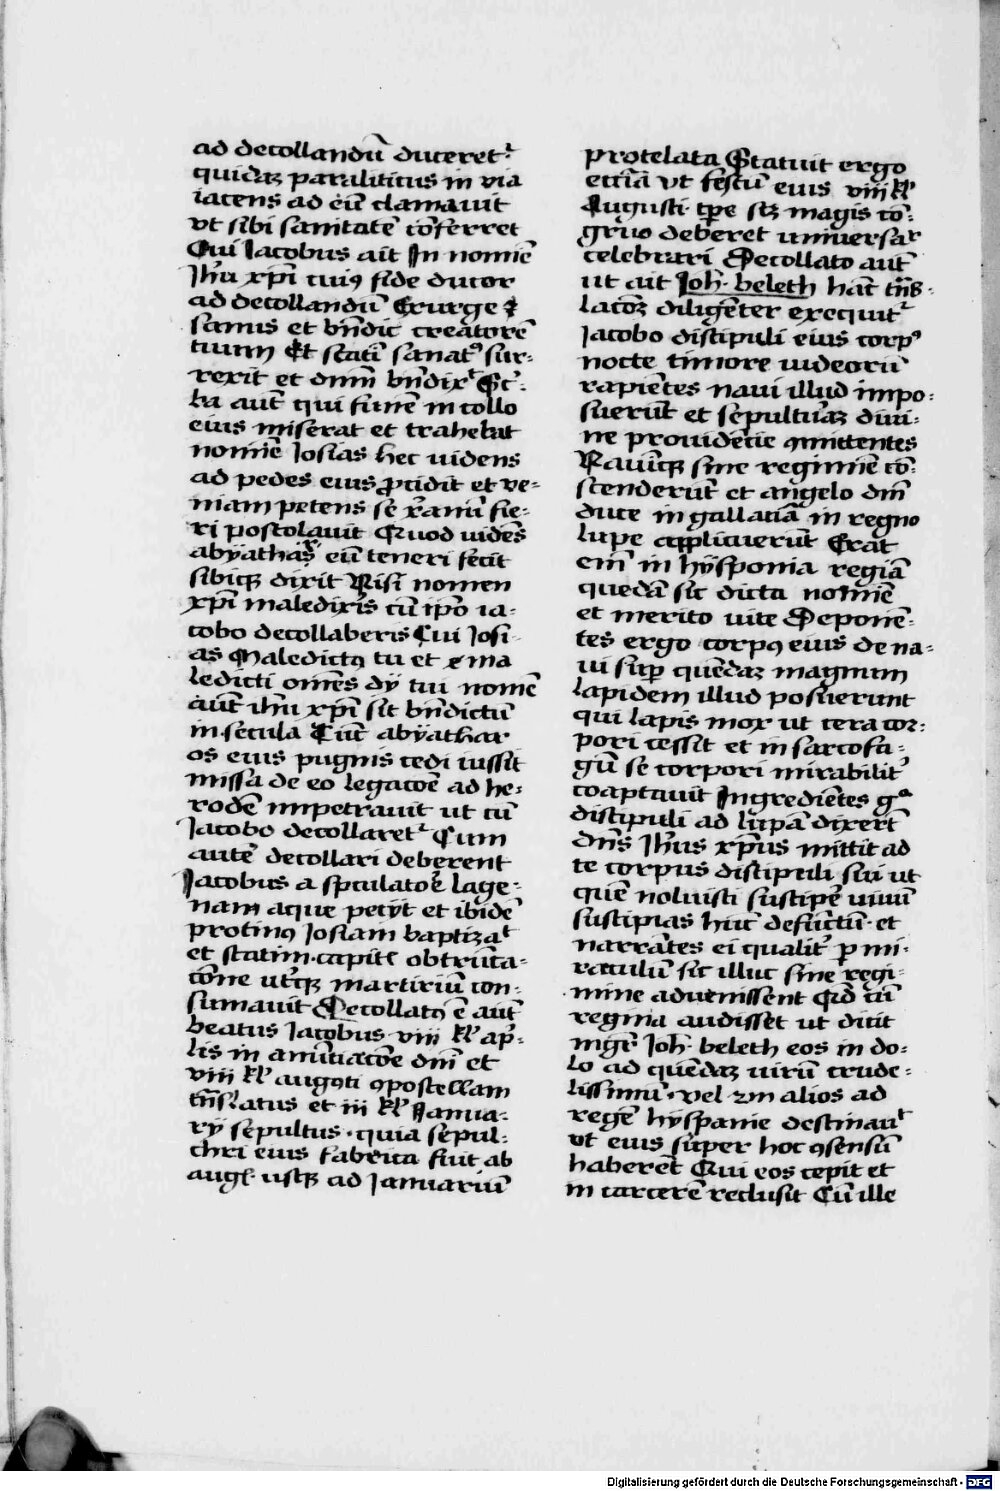 ad decollandū duceret᷑
quidaꝫ paraliticus in via
iacens ad eū clamauit
vt sibi sanitatē cōferret
Qui Iacobus ait In nomīe
Ihū xp̄i cuiꝯ fide ducor
ad decollandū Exurge ⁊
sanus et bn̄dic creatorē
tuum Et statī sanatꝯ sur-
rexit et dnm̄ bn̄dix᷑ Sc͛-
ba aut̄ qui funē in collo
eius miserat et trahebat
nomīe Iosias hec uidens
ad pedes eius ꝓcidit et ve-
niam petens se xr̄anū fie-
ri postolauit Quod uidēs
abyathar eū teneri fecit
sibiqꝫ dixit Nisi nomen
xp̄i maledixͥs cū ip̄o ia-
cobo decollaberis Cui Iosi-
as Maledictꝯ tu et ma
ledicti om̄es dÿ tui nomē
aut̄ ihū xp̄i sit bn̄dictū
in secula Tūc abyathar
os eius pugnis cedi iussit
missa de eo legacōe ad he-
rodē impetrauit ut cū
Iacobo decollaret᷑ Cum
autē decollari deberent
Iacobus a spculatoͤ lage-
nam aque petÿt et ibidē
protinꝯ Iosiam baptizat᷑
et statim capitꝭ obtrūca-
cōne ut͛qꝫ martiriū con-
sumauit Decollatꝯ ē aut̄
beatus Iacobus viii kl̄ ap͛-
lis in anūtiacōe dnī et
viii kl̄ augꝯti ꝯpostellam
trn̄slatus et iii kl̄ Ianua-
rÿ sepultus quia sepul-
chri eius fabrica fuit ab
augl̄ usqꝫ ad Ianuariū
protelata Statuit ergo
ecciā vt festū eius viii kl̄
Augusti tp̄e scꝫ magis cō-
gruo deberet uniuersar᷑
celebrari Decollato aut̄
ut ait Joh̄ beleth hāc trn̄s-
lacōꝫ diligēter exequit᷑
Iacobo discipuli eius corpꝯ
nocte timore iudeorū
rapiētes naui illud impo-
suerūt et sepulturaꝫ diui-
ne prouidētie ꝯmittentes
Nauūqꝫ sine regimīe cō-
scenderūt et angelo dnī
duce in gallaciā in regno
lupe applicuerūt Erat
enī in hÿsponia regiā
quedā sic dicta nomīe
et merito uite Deponē-
tes ergo corpꝯ eius de na-
ui suꝑ quēdaꝫ magnum
lapidem illud posuerunt
qui lapis mox ut cera cor-
pori cessit et in sarcofa-
gū se corpori mirabilit͛
coaptauit Ingrediētes gͦ
discipuli ad lupā dixert̄
dn̄s Ihūs xp̄us mittit ad
te corpus discipuli sui ut
quē noluisti suscipē uiuū
suscipias hūc defūctū et
narrātes ei qualit͛ ꝑ mi-
raculū sic illuc sine regi-
mine aduenissent Qd̄ cū
regina audisset ut dicit
mgr̄ Joh̄ beleth eos in do-
lo ad quēdaꝫ uirū crude-
lissimū vel ẜm alios ad
regē hÿspanie destinau᷑
vt eius super hoc ꝯsensū
haberēt Qui eos cepit et
in carcerē reclusit Cū ille
Digitalisierung gefördert durch die Deutsche Forschungsgemeinschaft - DFG